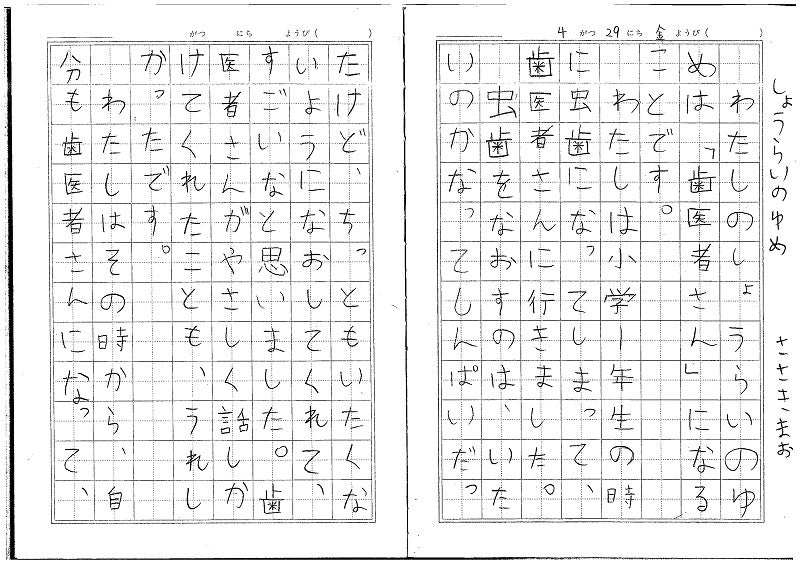 4 がつ 29 にち 金 ようび( )
しょうらいのゆめ ささきまお
わたしのしょうらいのゆ
めは「歯医者さん」になる
ことです。
わたしは小学一年生の時
に虫歯になってしまって、
歯医者さんに行きました。
虫歯をなおすのは、いた
いのかなってしんぱいだっ
がつ にち ようび( )
たけど、ちっともいたくな
いようになおしてくれて、
すごいなと思いました。歯
医者さんがやさしく話しか
けてくれたことも、うれし
かったです。
わたしはその時から、自
分も歯医者さんになって、